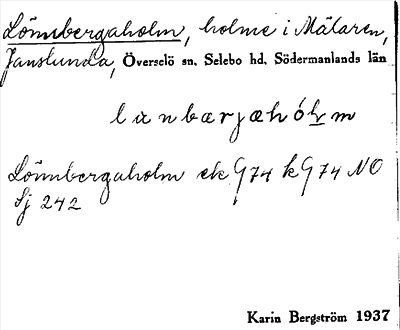 Lönnbergaholm, holme i Mälaren,
Janslunda, Överselö sn, Selebo hd, Södermanlands län
lünbærjæhólm
Lönnbergaholm ek G74 k G74 NO
Sj 242
Karin Bergström 1937